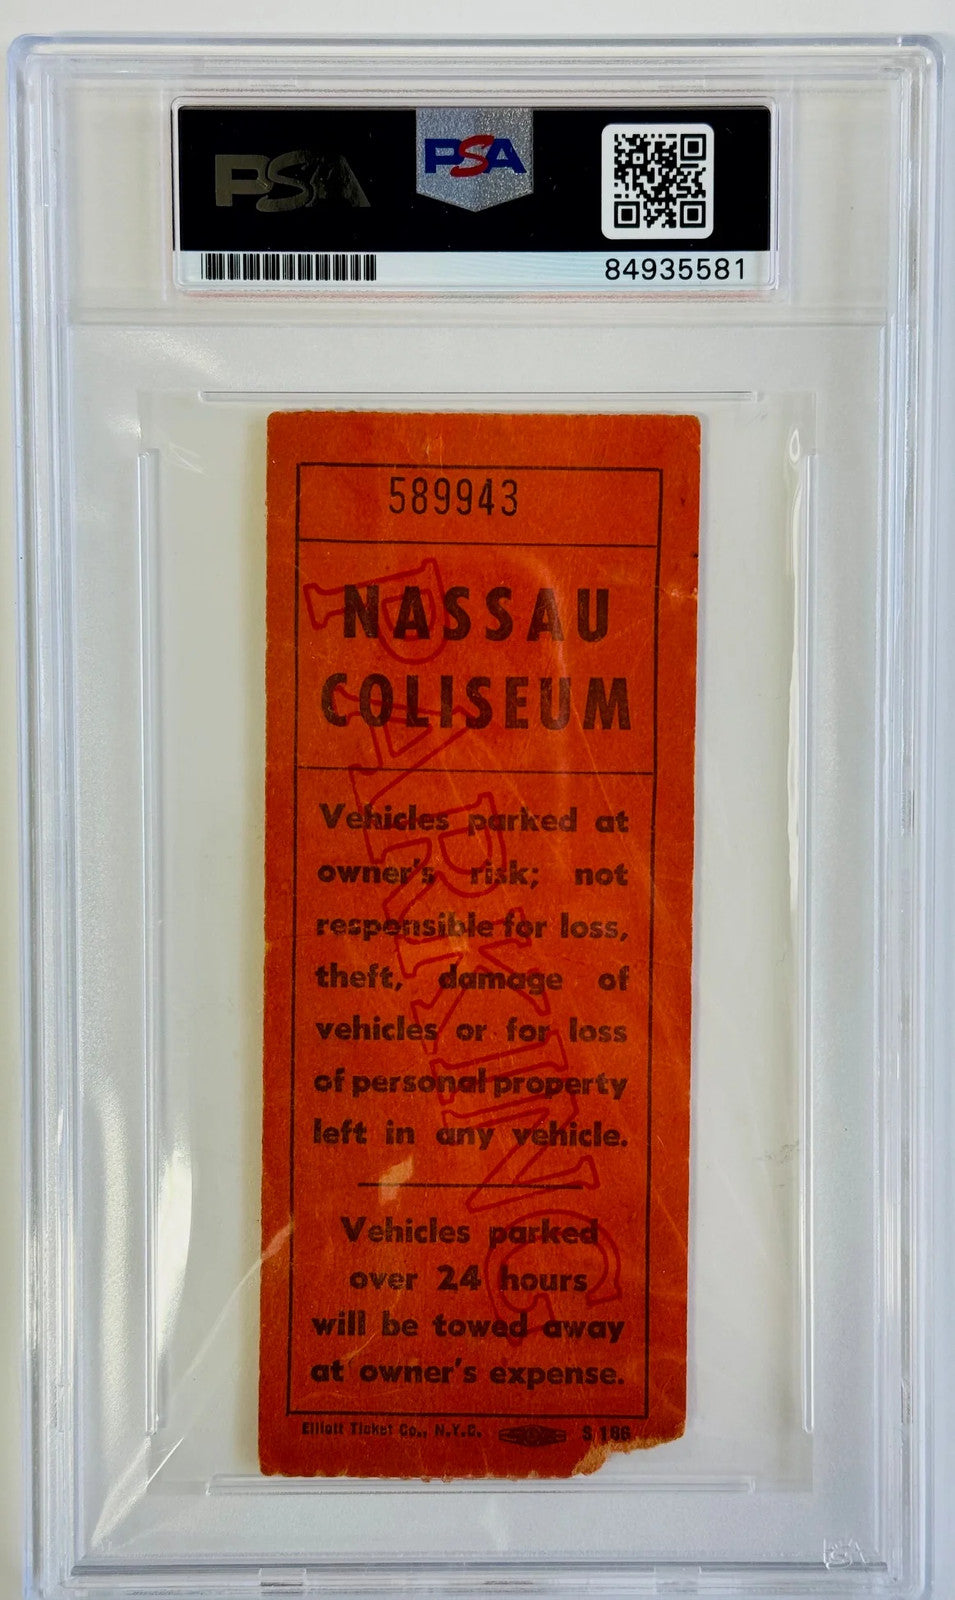 PSA
PSA
84935581
589943
NASSAU
COLISEUM
PARKING
Vehicles parked at
owner's risk; not
responsible for loss,
theft, damage of
vehicles or for loss
of personal property
left in any vehicle.
Vehicles parked
over 24 hours
will be towed away
at owner's expense.
Elliott Ticket Co., N.Y.C.
S 166
PSA